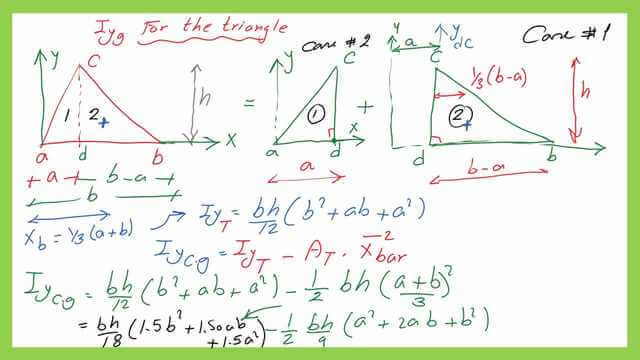 Iyg For the triangle
Case #2
Case #1
y
C
1
2
h
a
d
b
x
a
b-a
b
=
y
C
1
a
d
x
a
+
y
a
y dC
C
1/3(b-a)
2
h
d
b
b-a
Xb = 1/3(a+b)
IyT = bh/12 (b² + ab + a²)
Iyc.g = IyT - AT · x̄²bar
Iyc.g = bh/12 (b² + ab + a²) - 1/2 bh (a+b/3)²
= bh/18 (1.5b² + 1.50ab + 1.5a²) - 1/2 bh/9 (a² + 2ab + b²)